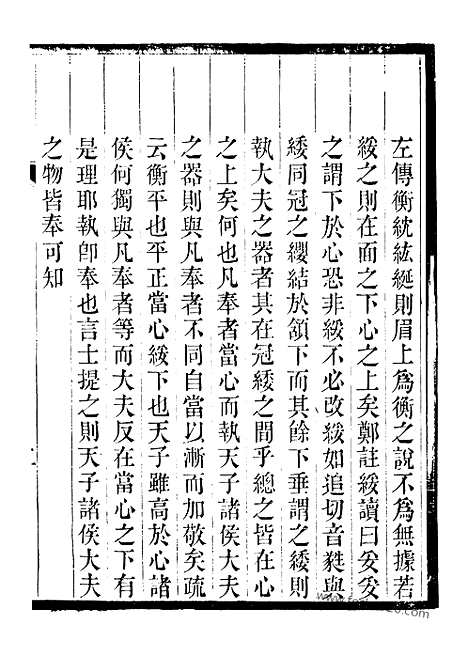 左傳衡紞紘綖則眉上爲衡之說不爲無據若
綏之則在面之下心之上矣鄭註綏讀曰妥妥
之謂下於心恐非綏不必改綏如追切音甤與
緌同冠之纓結於頷下而其餘下垂謂之緌則
執大夫之器者其在冠緌之間乎總之皆在心
之上矣何也凡奉者當心而執天子諸侯大夫
之器則與凡奉者不同自當以漸而加敬矣疏
云衡平也平正當心綏下也天子雖高於心諸
侯何獨與凡奉者等而大夫反在當心之下有
是理耶執卽奉也言士提之則天子諸侯大夫
之物皆奉可知